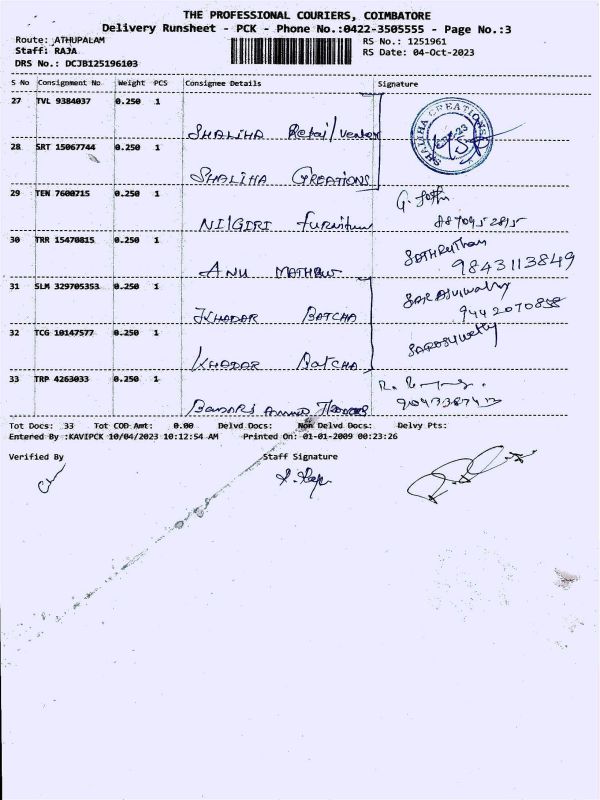 THE PROFESSIONAL COURIERS, COIMBATORE
Delivery Runsheet - PCK - Phone No.:0422-3505555 - Page No.:3
Route: ATHUPALAM
RS No.: 1251961
Staff: RAJA
RS Date: 04-Oct-2023
DRS No.: DCJB125196103
S No Consignment No Weight PCS Consignee Details Signature
27 TVL 9384037 0.250 1
SHALIHA Retail/
SHALIHA CREATIONS
28 SRT 15067744 0.250 1
SHALIHA CREATIONS
29 TEN 7600715 0.250 1
NILGIRI Furniture
30 TRR 15470815 0.250 1
ANU
9843113849
31 SLM 329705353 0.250 1
KHADAR BATCHA
9442070858
32 TCG 10147577 0.250 1
KHADAR BATCHA
33 TRP 4263033 0.250 1
Tot Docs: 33 Tot COD Amt: 0.00 Delvd Docs: Non Delvd Docs: Delvy Pts:
Entered By :KAVIPCK 10/04/2023 10:12:54 AM Printed On: 01-01-2009 00:23:26
Verified By Staff Signature